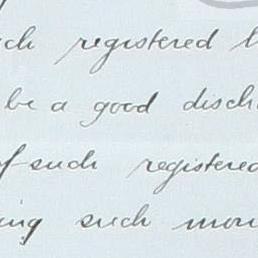 such registered
be a good disch
of such registered
ing such mon